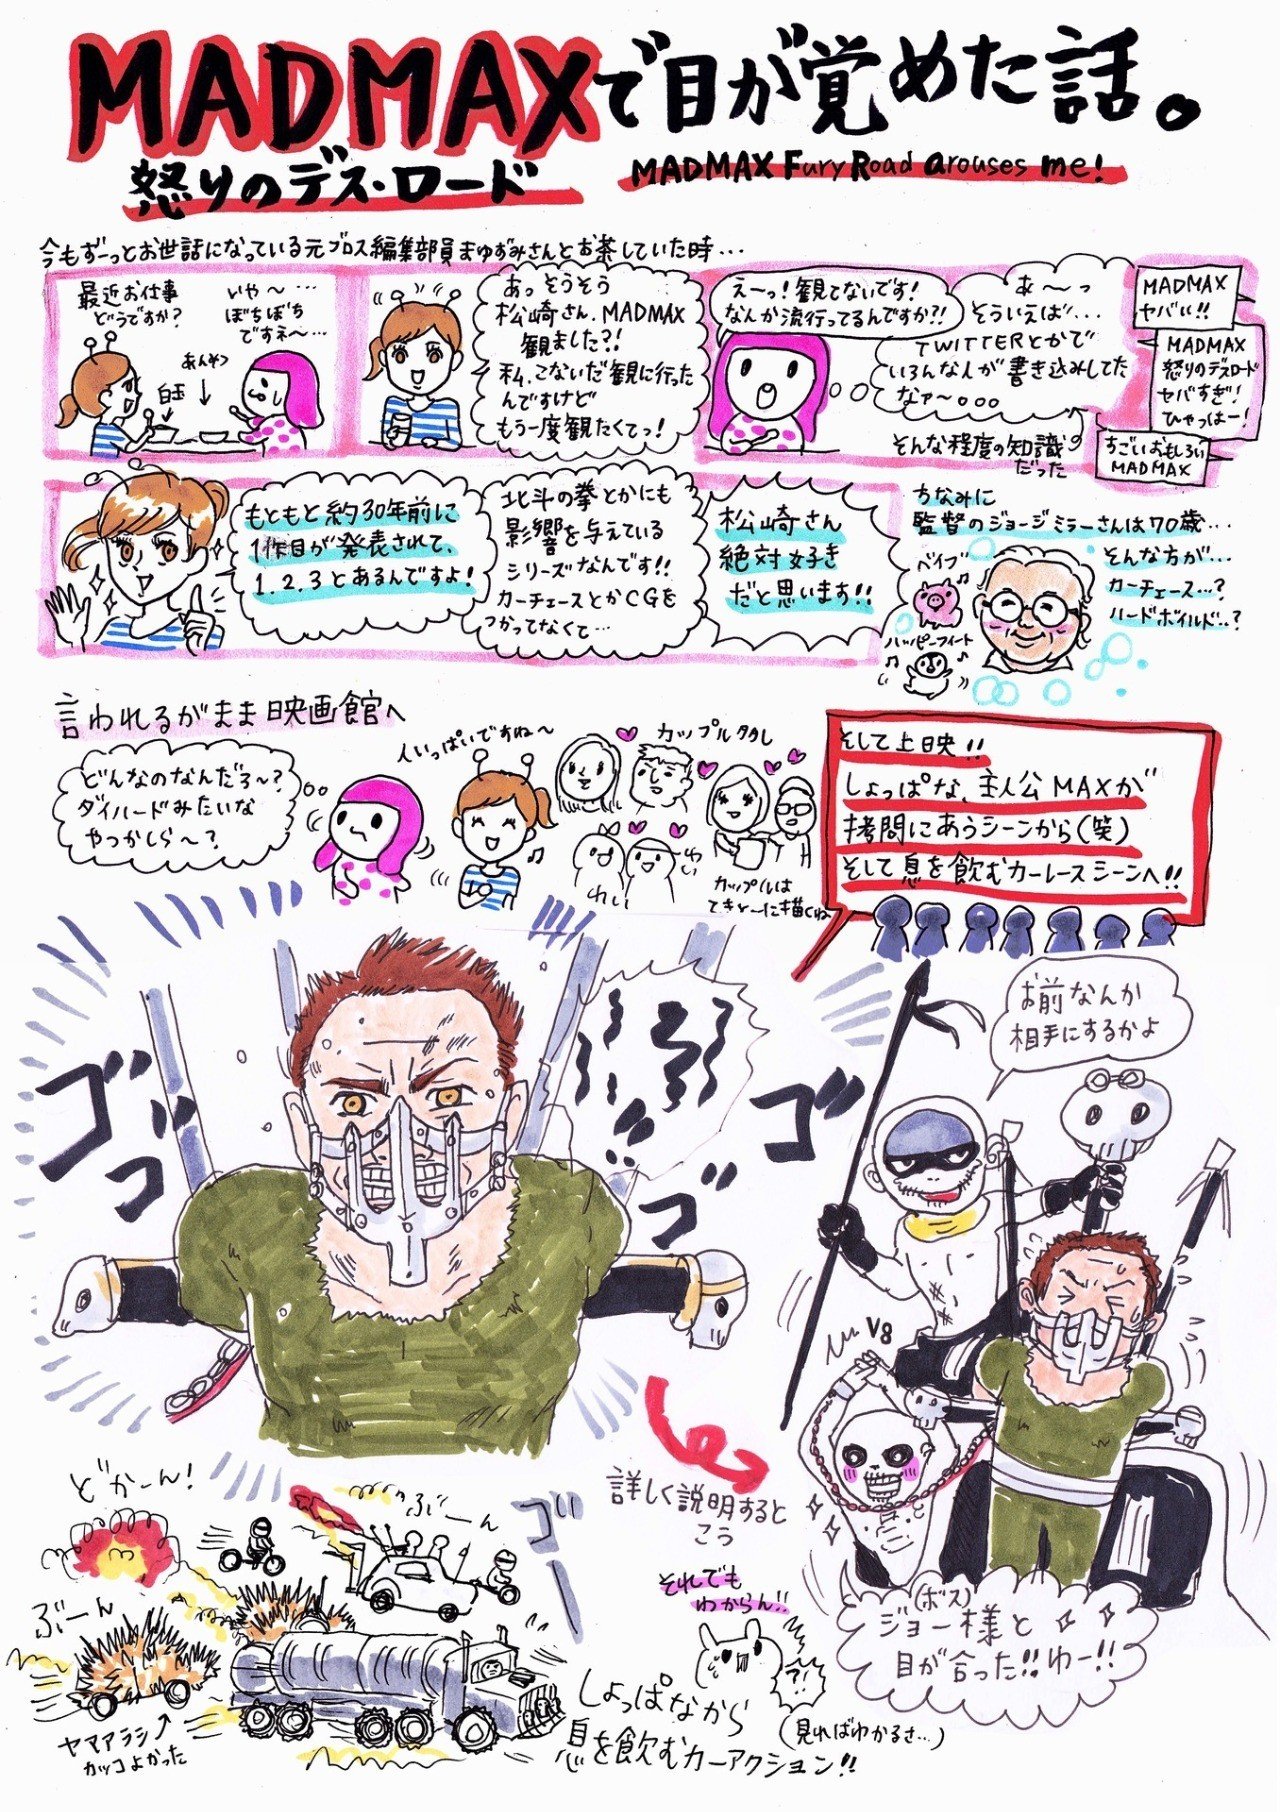 MADMAXで目が覚めた話。
怒りのデス・ロード
MADMAX Fury Road arouses me!
今もずーっとお世話になっている元ブロス編集部員まゆずみさんとお茶していた時...
最近お仕事
どうですか?
いや〜...
ぼちぼち
ですえ〜...
あんみつ
白玉
あっそうそう
松崎さん、MADMAX
観ました?!
私、こないだ観に行った
んですけど
もう一度観たくてっ!
えーっ!観てないです!
なんか流行ってるんですか?!
あ〜っ
そういえば...
TWITTERとかで
いろんな人が書き込みしてた
なァ〜。。。
そんな程度の知識
だった
MADMAX
ヤバい!!
MADMAX
怒りのデスロード
ヤバすぎ!
ひゃっはー!
ちごいおもしろい
MADMAX
もともと約30年前に
1作目が発表されて、
1.2.3とあるんですよ!
北斗の拳とかにも
影響を与えている
シリーズなんです!!
カーチェースとかCGを
つかってなくて...
松崎さん
絶対好き
だと思います!!
ちなみに
監督のジョージミラーさんは70歳...
ベイブ
ハッピーフィート
そんな方が...
カーチェース...?
ハードボイルド..?
言われるがまま映画館へ
どんなのなんだろ〜?
ダイハードみたいな
やつかしら〜?
人いっぱいですね〜
カップル多し
わい
わい
カップルは
てきと〜に描くね
そして上映!!
しょっぱな、主人公MAXが
拷問にあうシーンから(笑)
そして息を飲むカーレースシーンへ!!
ゴゴゴゴ
お前なんか
相手にするかよ
V8
詳しく説明すると
こう
それでも
わからん!!
?!
(見ればわかるさ...)
(ボス)
ジョー様と
目が合った!!わー!!
どかーん!
ぶーん
ゴー
ぶーん
ヤマアラシ
カッコよかった
しょっぱなから
息を飲むカーアクション!!